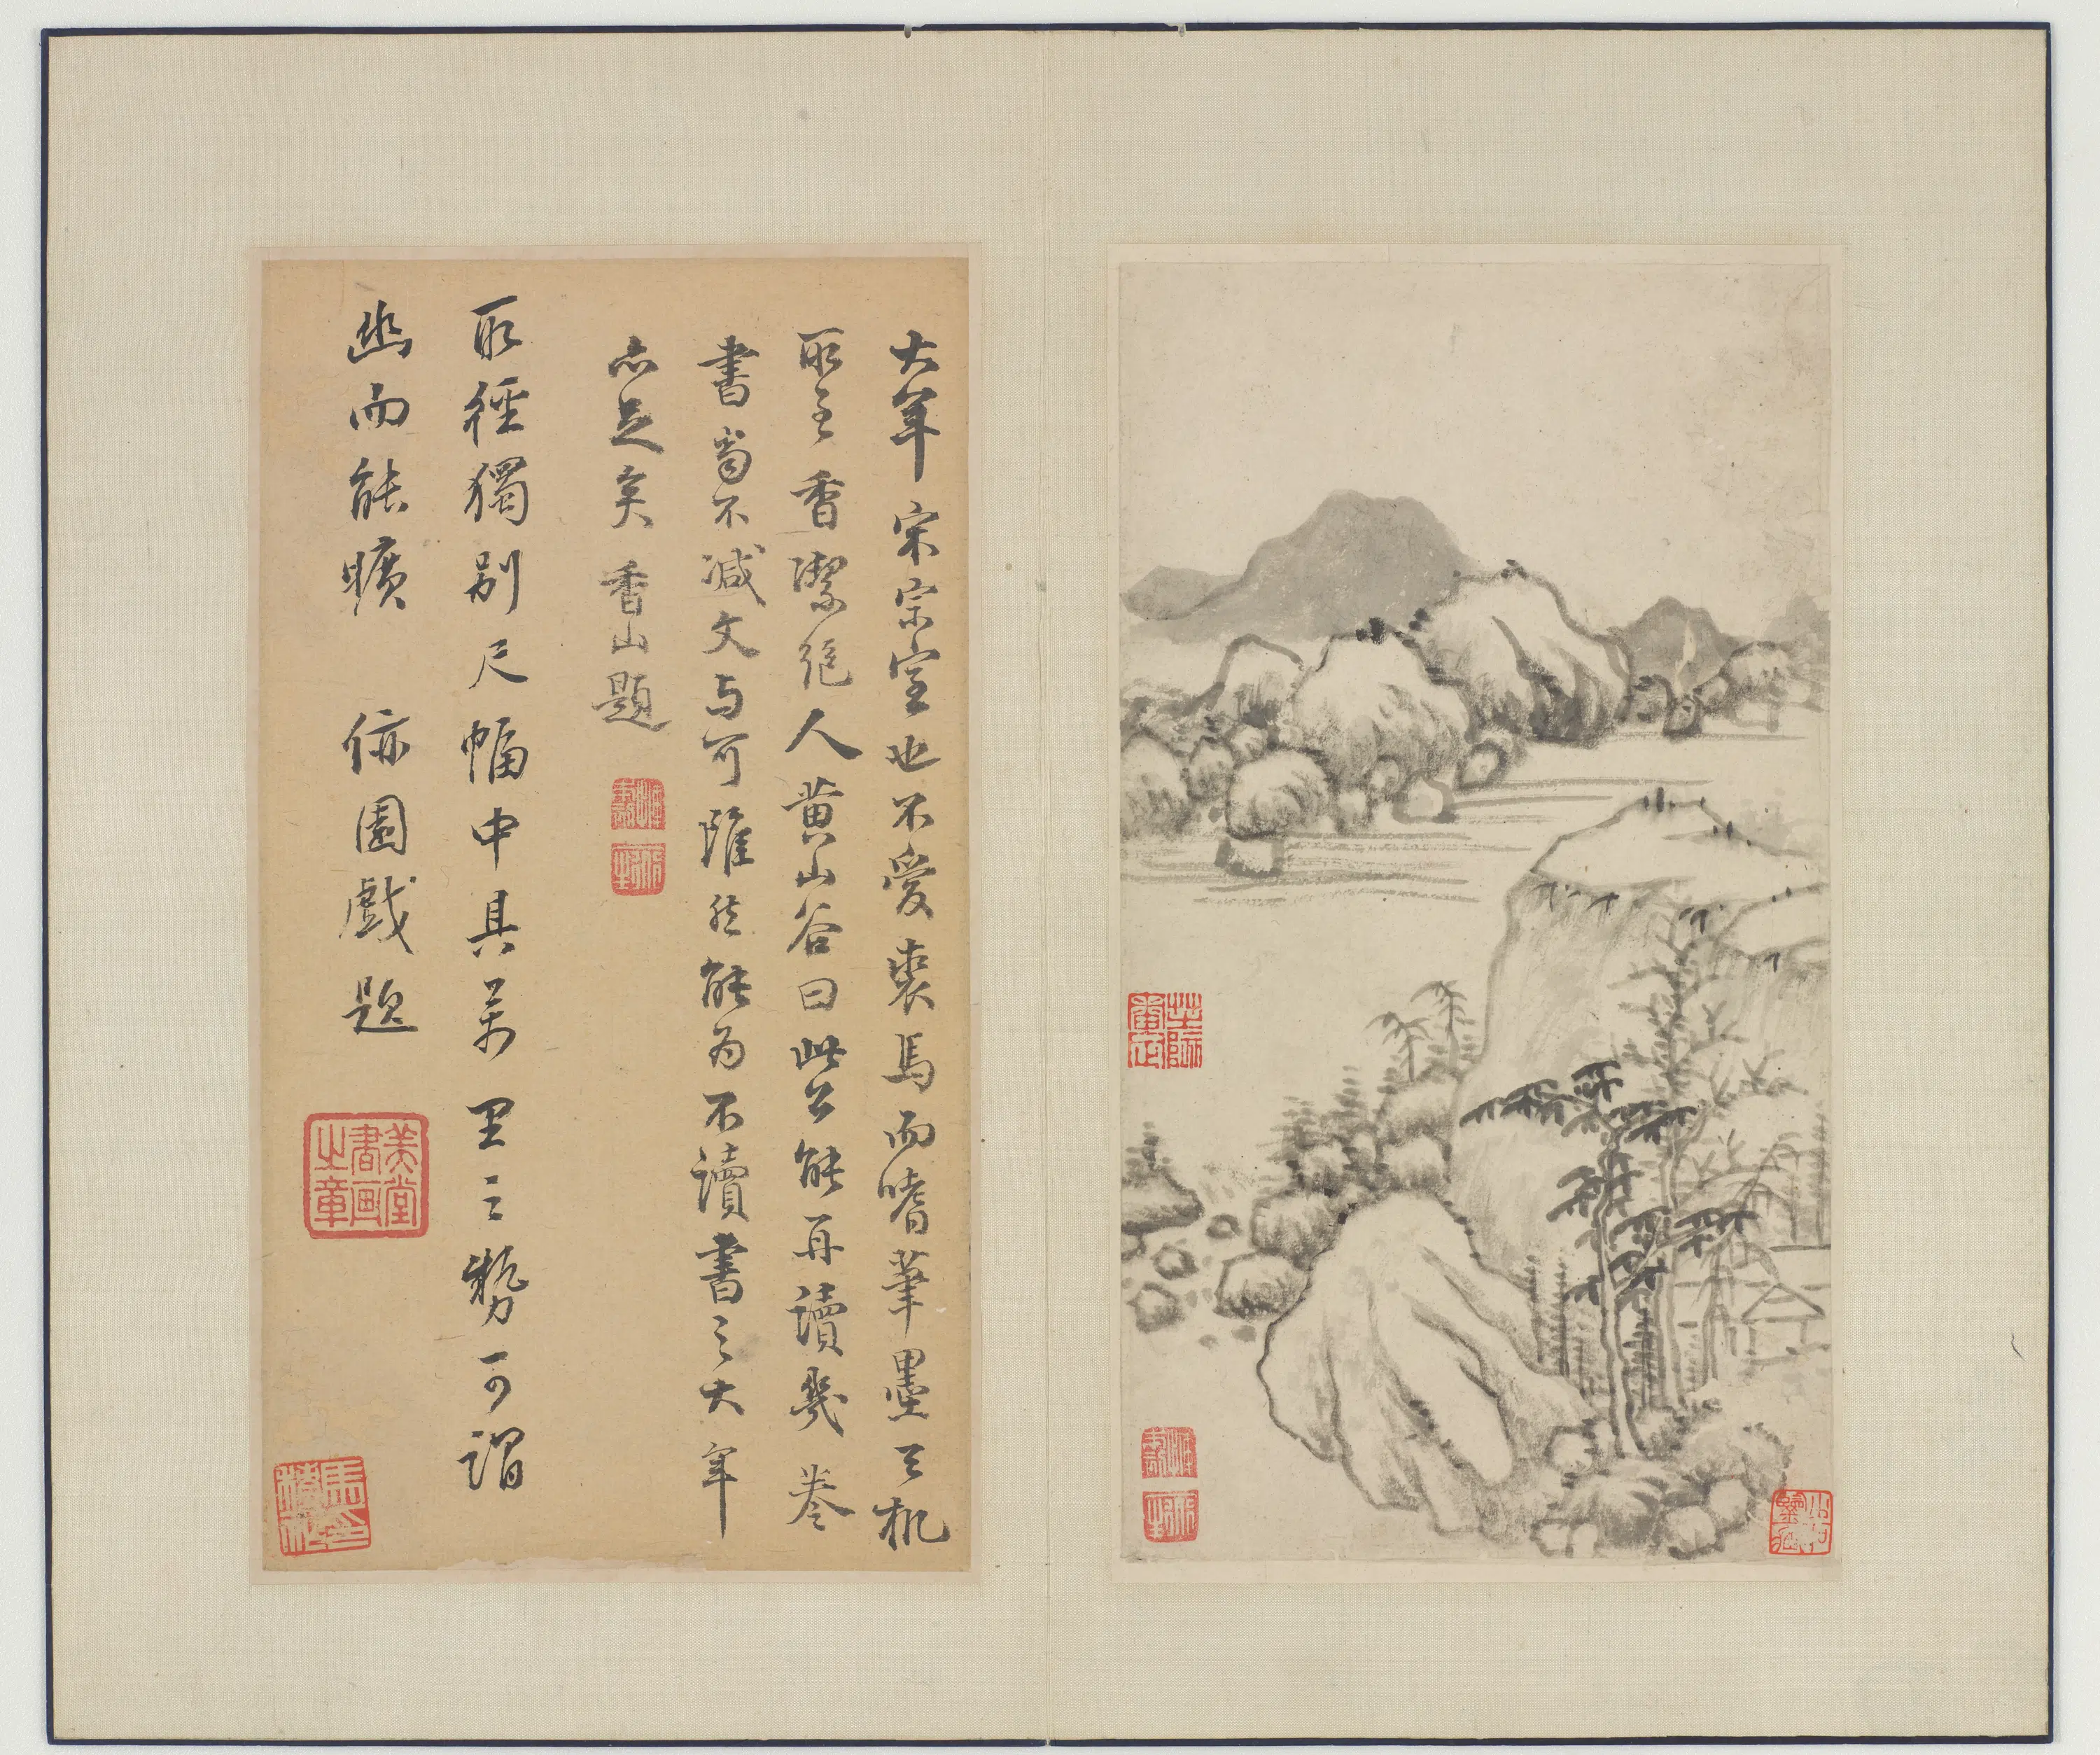 大年宋宗室也不愛裘馬而嗜筆墨三机
取至香潔絕人黃山谷曰此公能再讀幾卷
書當不減文与可雖然能為不讀書之大年
亦足矣 香山題
取徑獨別尺幅中具萬里之勢可謂
幽而能曠 依園戲題
美堂書画之章